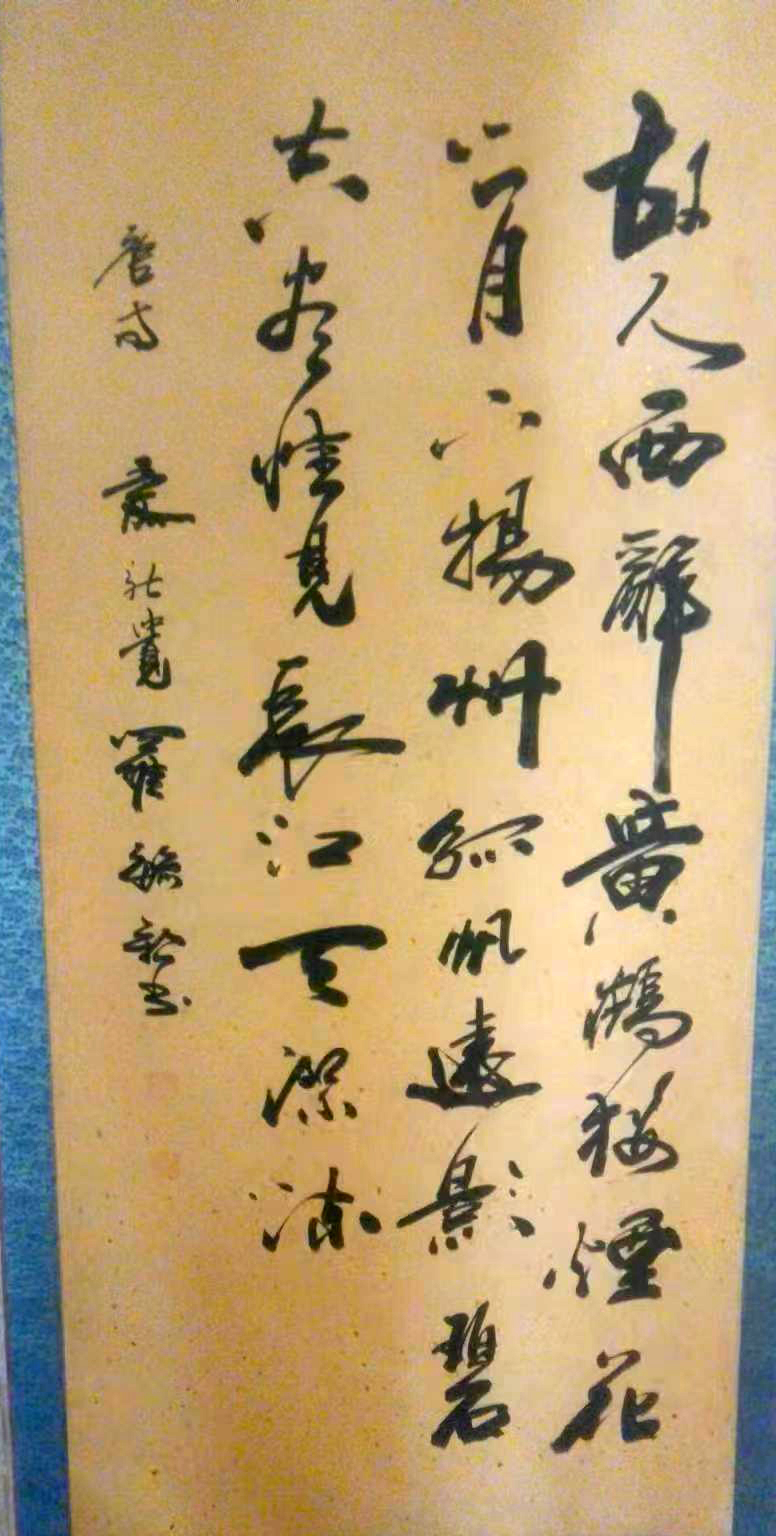 故人西辭黃鶴樓煙花
三月下揚州孤帆遠影碧
空盡惟見長江天際流
唐詩 羅 書